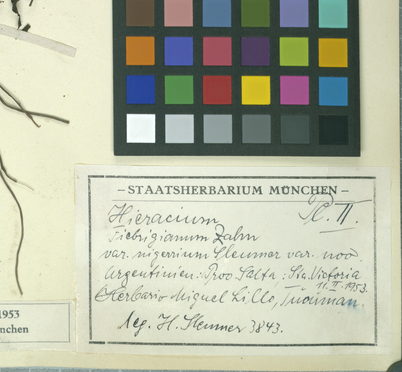 – STAATSHERBARIUM MÜNCHEN –
Hieracium Pl. II.
Fiebrigianum Zahn
var. nigerium Sleumer var. nov.
Argentinien: Prov. Salta, Sta. Victoria
11. II. 1953.
Herbario Miguel Lillo, Tucuman.
leg. H. Sleumer 3843.
1953
nchen